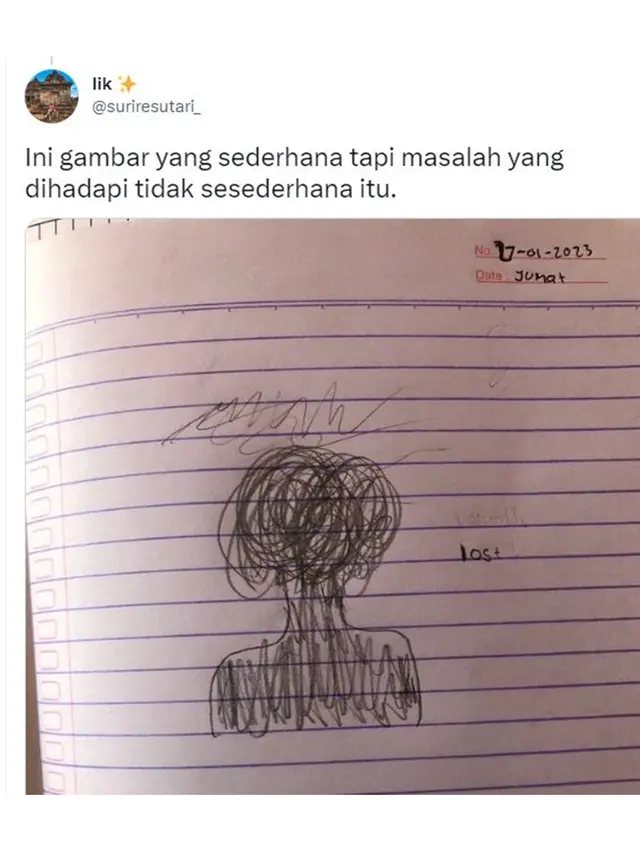 lik ✨
@suriresutari_
Ini gambar yang sederhana tapi masalah yang
dihadapi tidak sesederhana itu.
No. 17-01-2023
Date : Jumat
lost